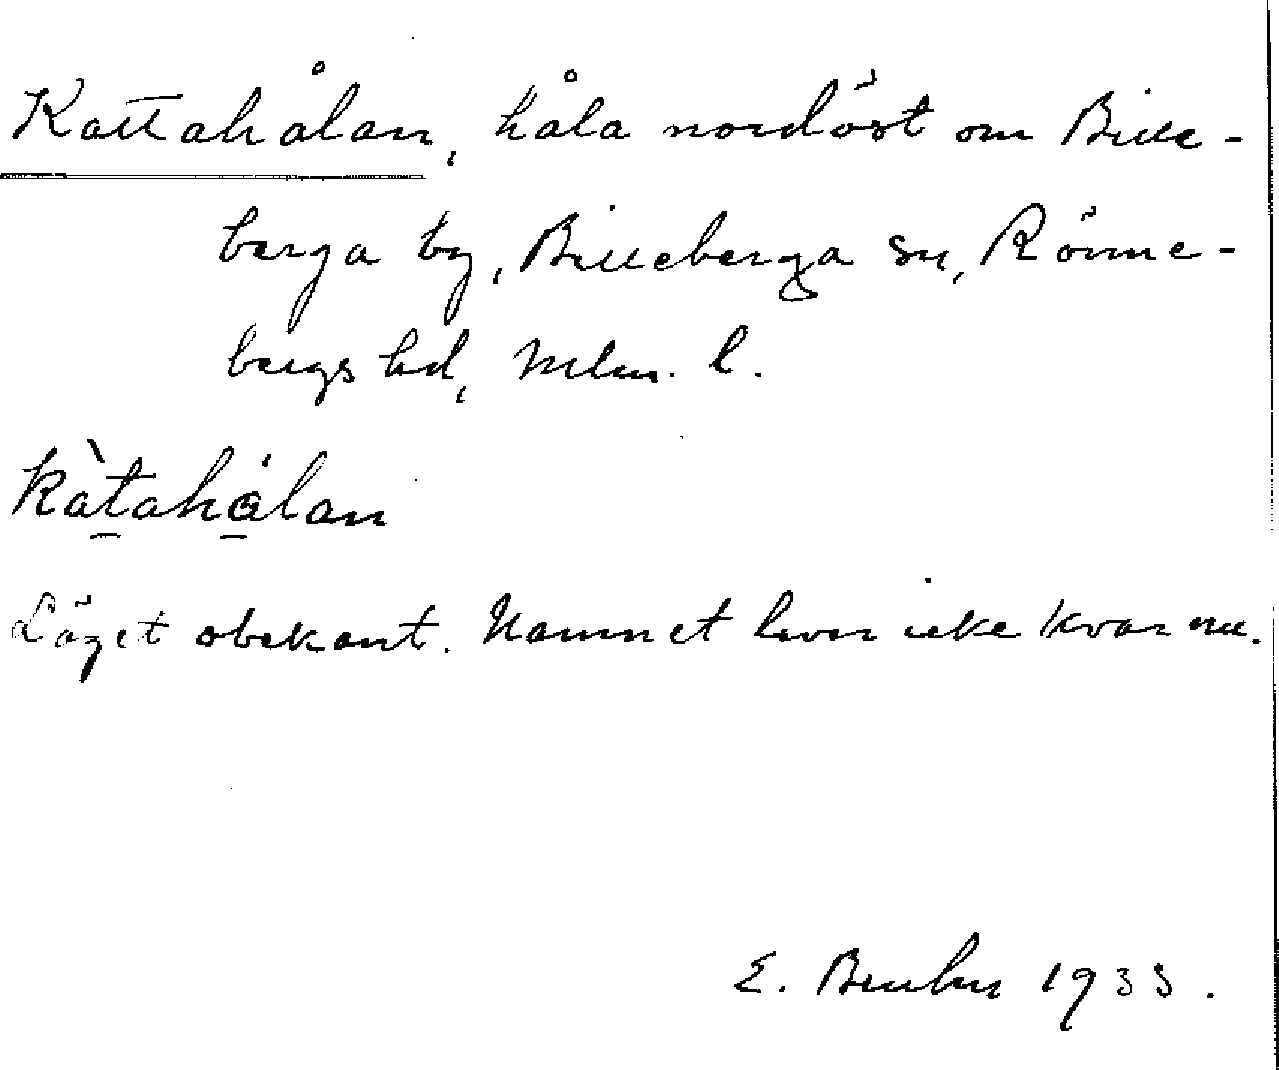 Kattahålan, håla nordöst om Bille-
berga by, Billeberga sn, Rönne-
bergs hd, Mlm. l.
kàt̠ahɑ̠́lan
Läget obekant. Namnet lever icke kvar nu.
E. Bruhn 1933.